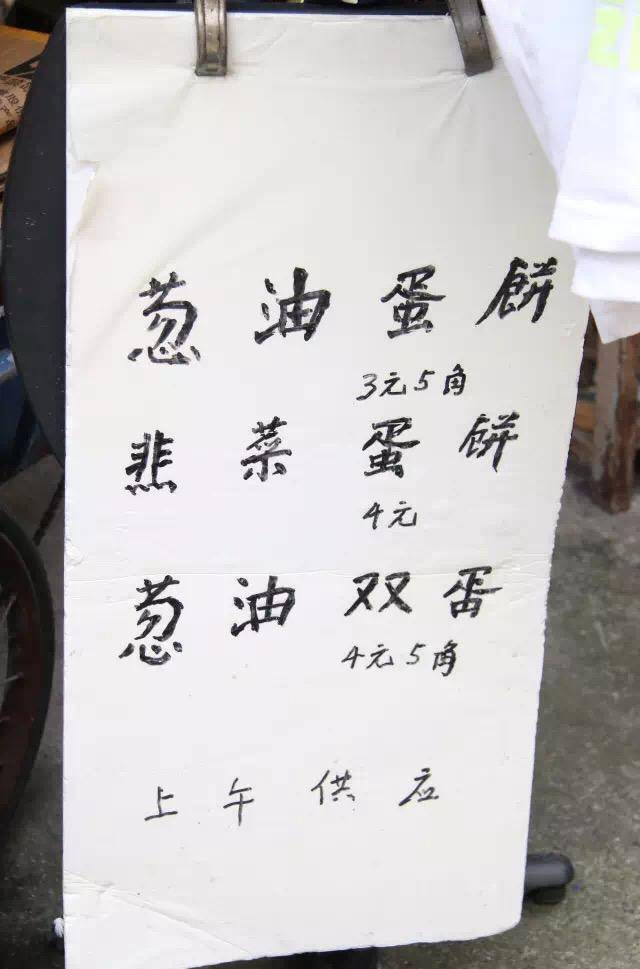 葱油蛋餅
3元5角
韭菜蛋餅
4元
葱油双蛋
4元5角
上午供应